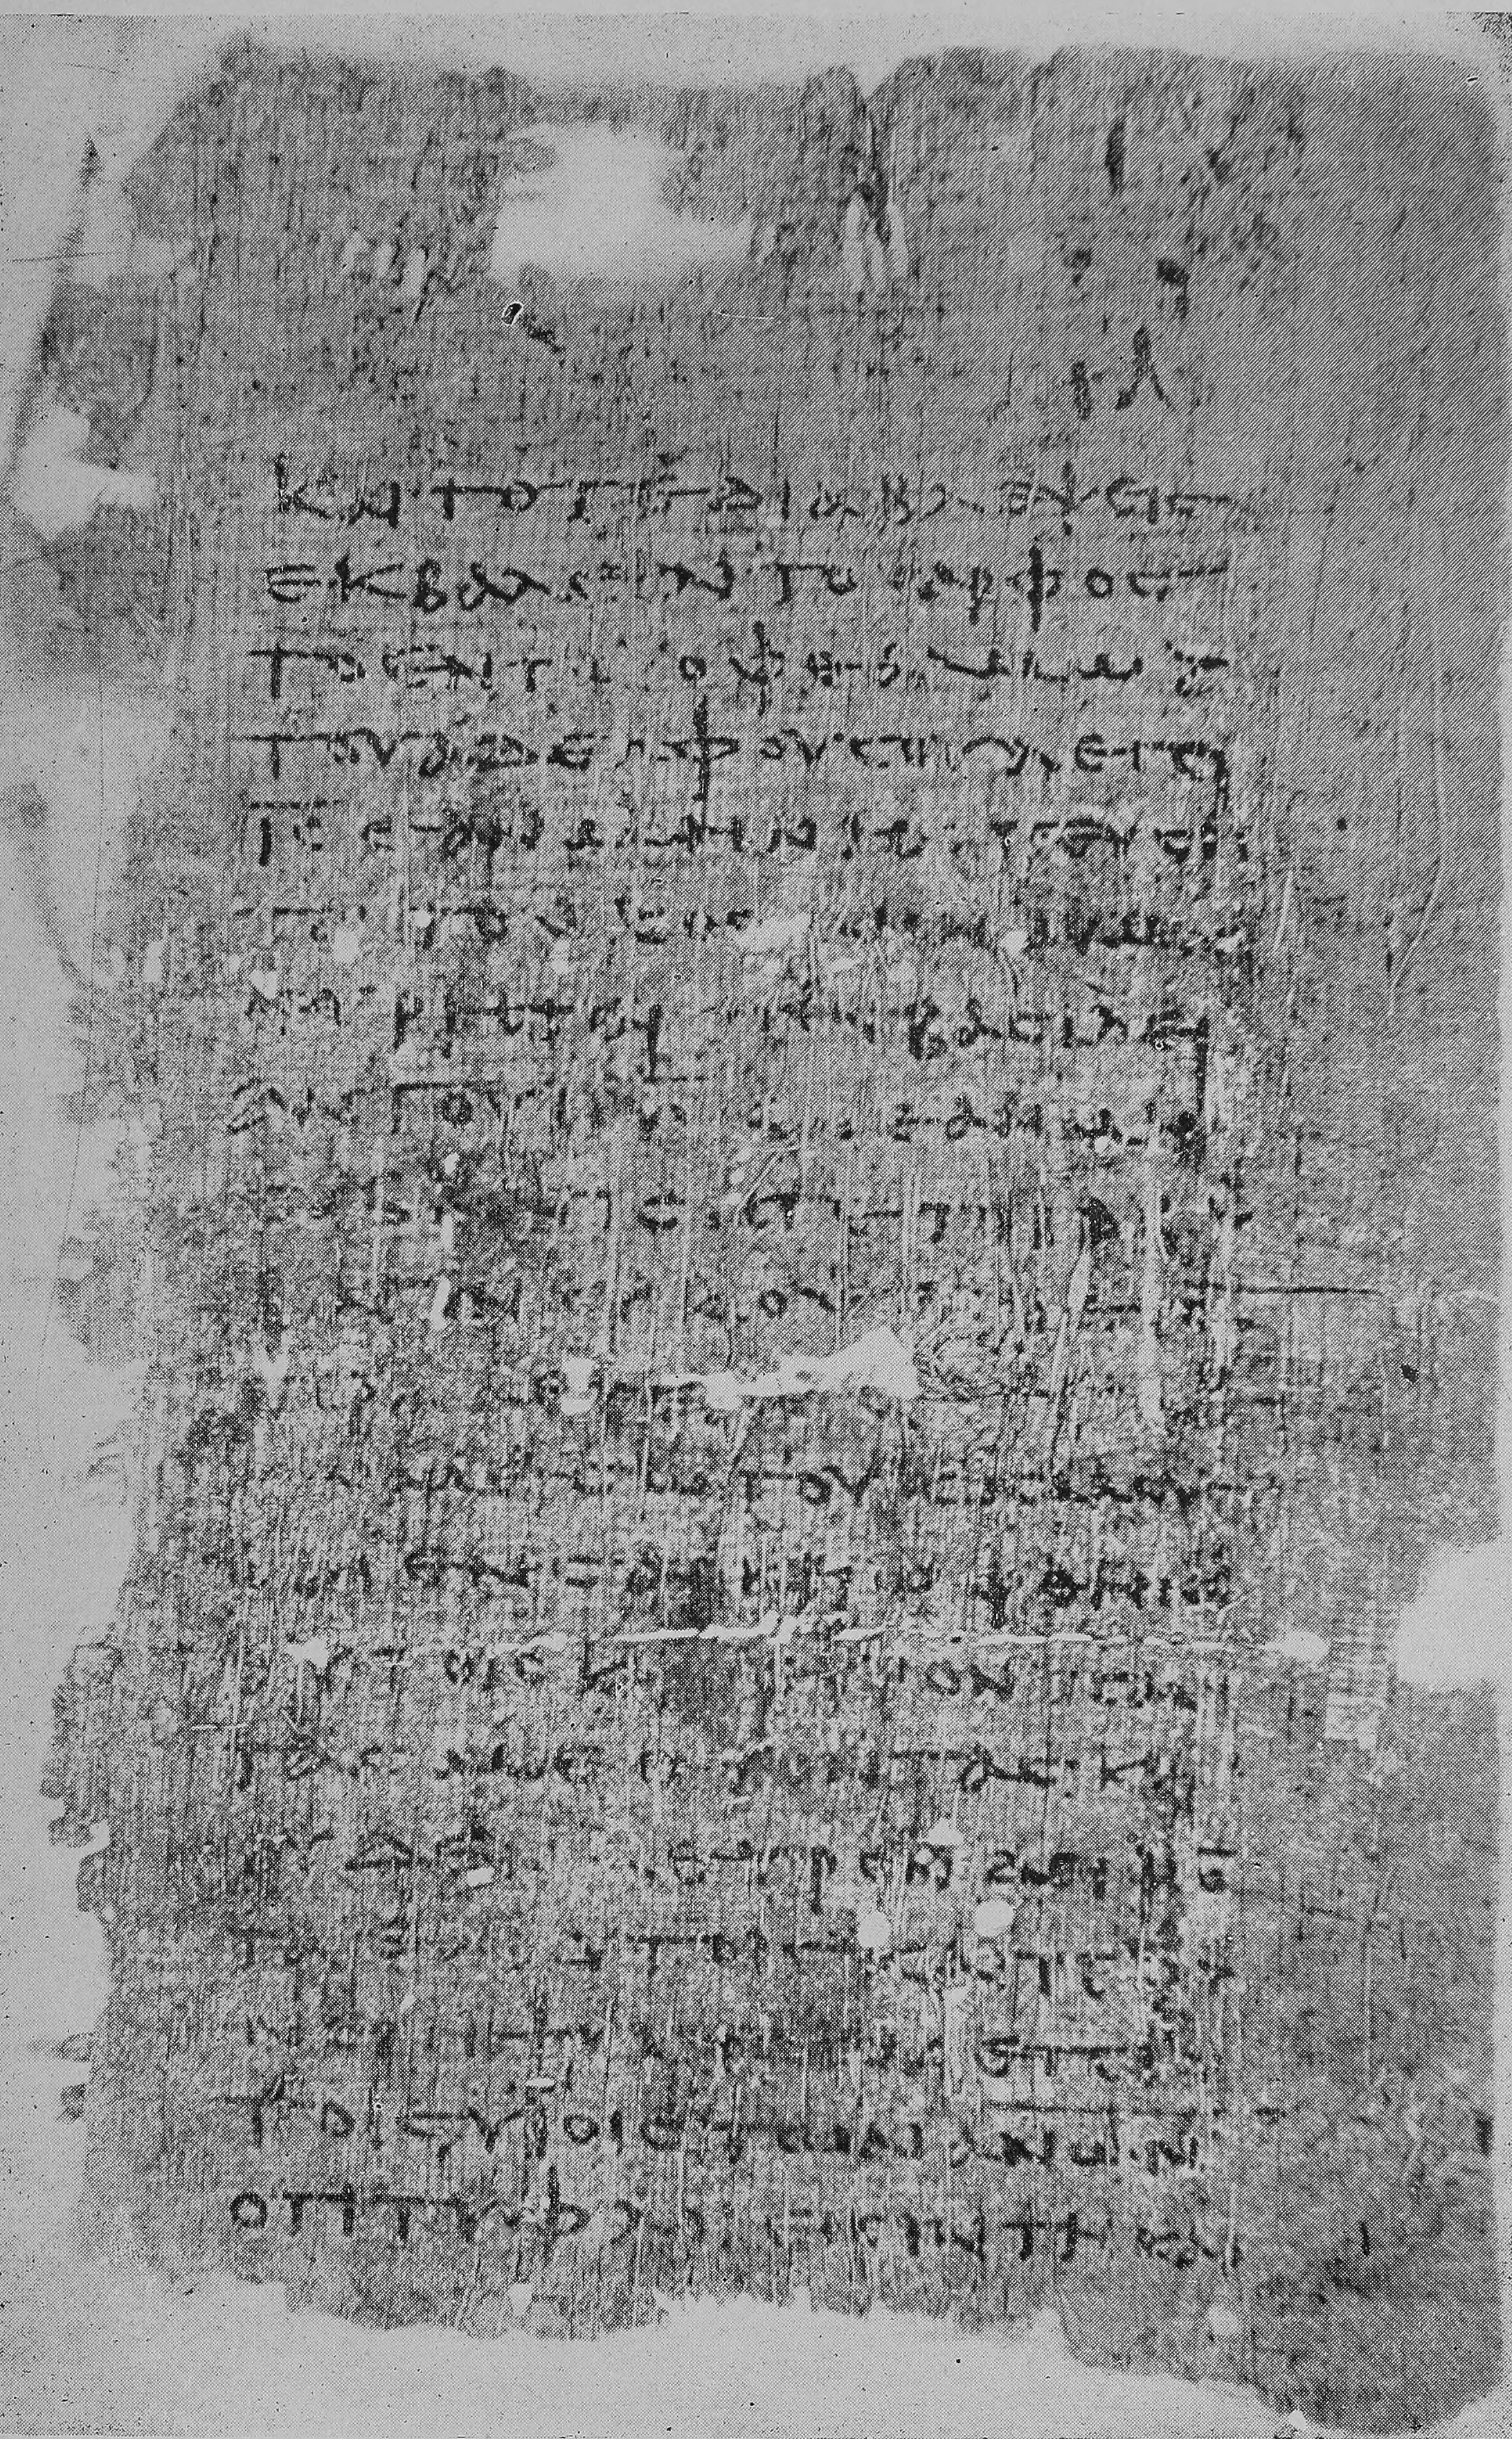 ΙΑ
ΚΑΙ ΤΟΤΕ ΔΙΑΒΛΕΨΕΙϹ
ΕΚΒΑΛΕΙΝ ΤΟ ΚΑΡΦΟϹ
ΤΟ ΕΝ ΤΩ ΟΦΘΑΛΜΩ
ΤΟΥ ΑΔΕΛΦΟΥ ϹΟΥ ΛΕΓΕΙ
ΙϹ ΕΑΝ ΜΗ ΝΗϹΤΕΥϹΗ
ΤΑΙ ΤΟΝ ΚΟϹΜΟΝ ΟΥ ΜΗ
ΕΥΡΗΤΑΙ ΤΗΝ ΒΑϹΙΛΕΙ
ΑΝ ΤΟΥ ΘΥ ΚΑΙ ΕΑΝ ΜΗ
ϹΑΒΒΑΤΙϹΗΤΕ ΤΟ ϹΑΒ
ΒΑΤΟΝ ΟΥΚ ΟΨΕϹΘΕ ΤΟ
ΠΡΑ
ΕΝ ΜΕϹΩ ΤΟΥ ΚΟϹΜΟΥ
ΚΑΙ ΕΝ ϹΑΡΚΕΙ ΩΦΘΗΝ
ΑΥΤΟΙϹ ΚΑΙ ΕΥΡΟΝ ΠΑΝ
ΤΑϹ ΜΕΘΥΟΝΤΑϹ ΚΑΙ
ΟΥΔΕΝΑ ΕΥΡΟΝ ΔΕΙΨΩ
ΤΑ ΕΝ ΑΥΤΟΙϹ ΚΑΙ ΠΟ
ΝΕΙ Η ΨΥΧΗ ΜΟΥ ΕΠΙ
ΤΟΙϹ ΥΙΟΙϹ ΤΩΝ ΑΝΩΝ
ΟΤΙ ΤΥΦΛΟΙ ΕΙϹΙΝ ΤΗ ΚΑΡ